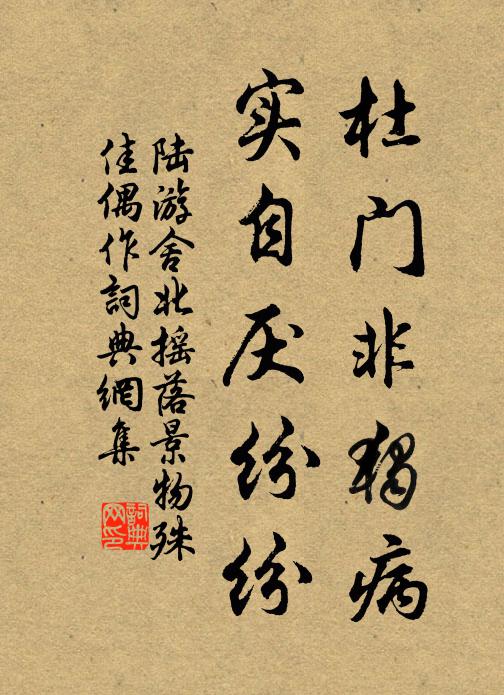 杜门非独病
实自厌纷纷
陆游舍北摇落景物殊
佳偶作词典網集
詞典網印